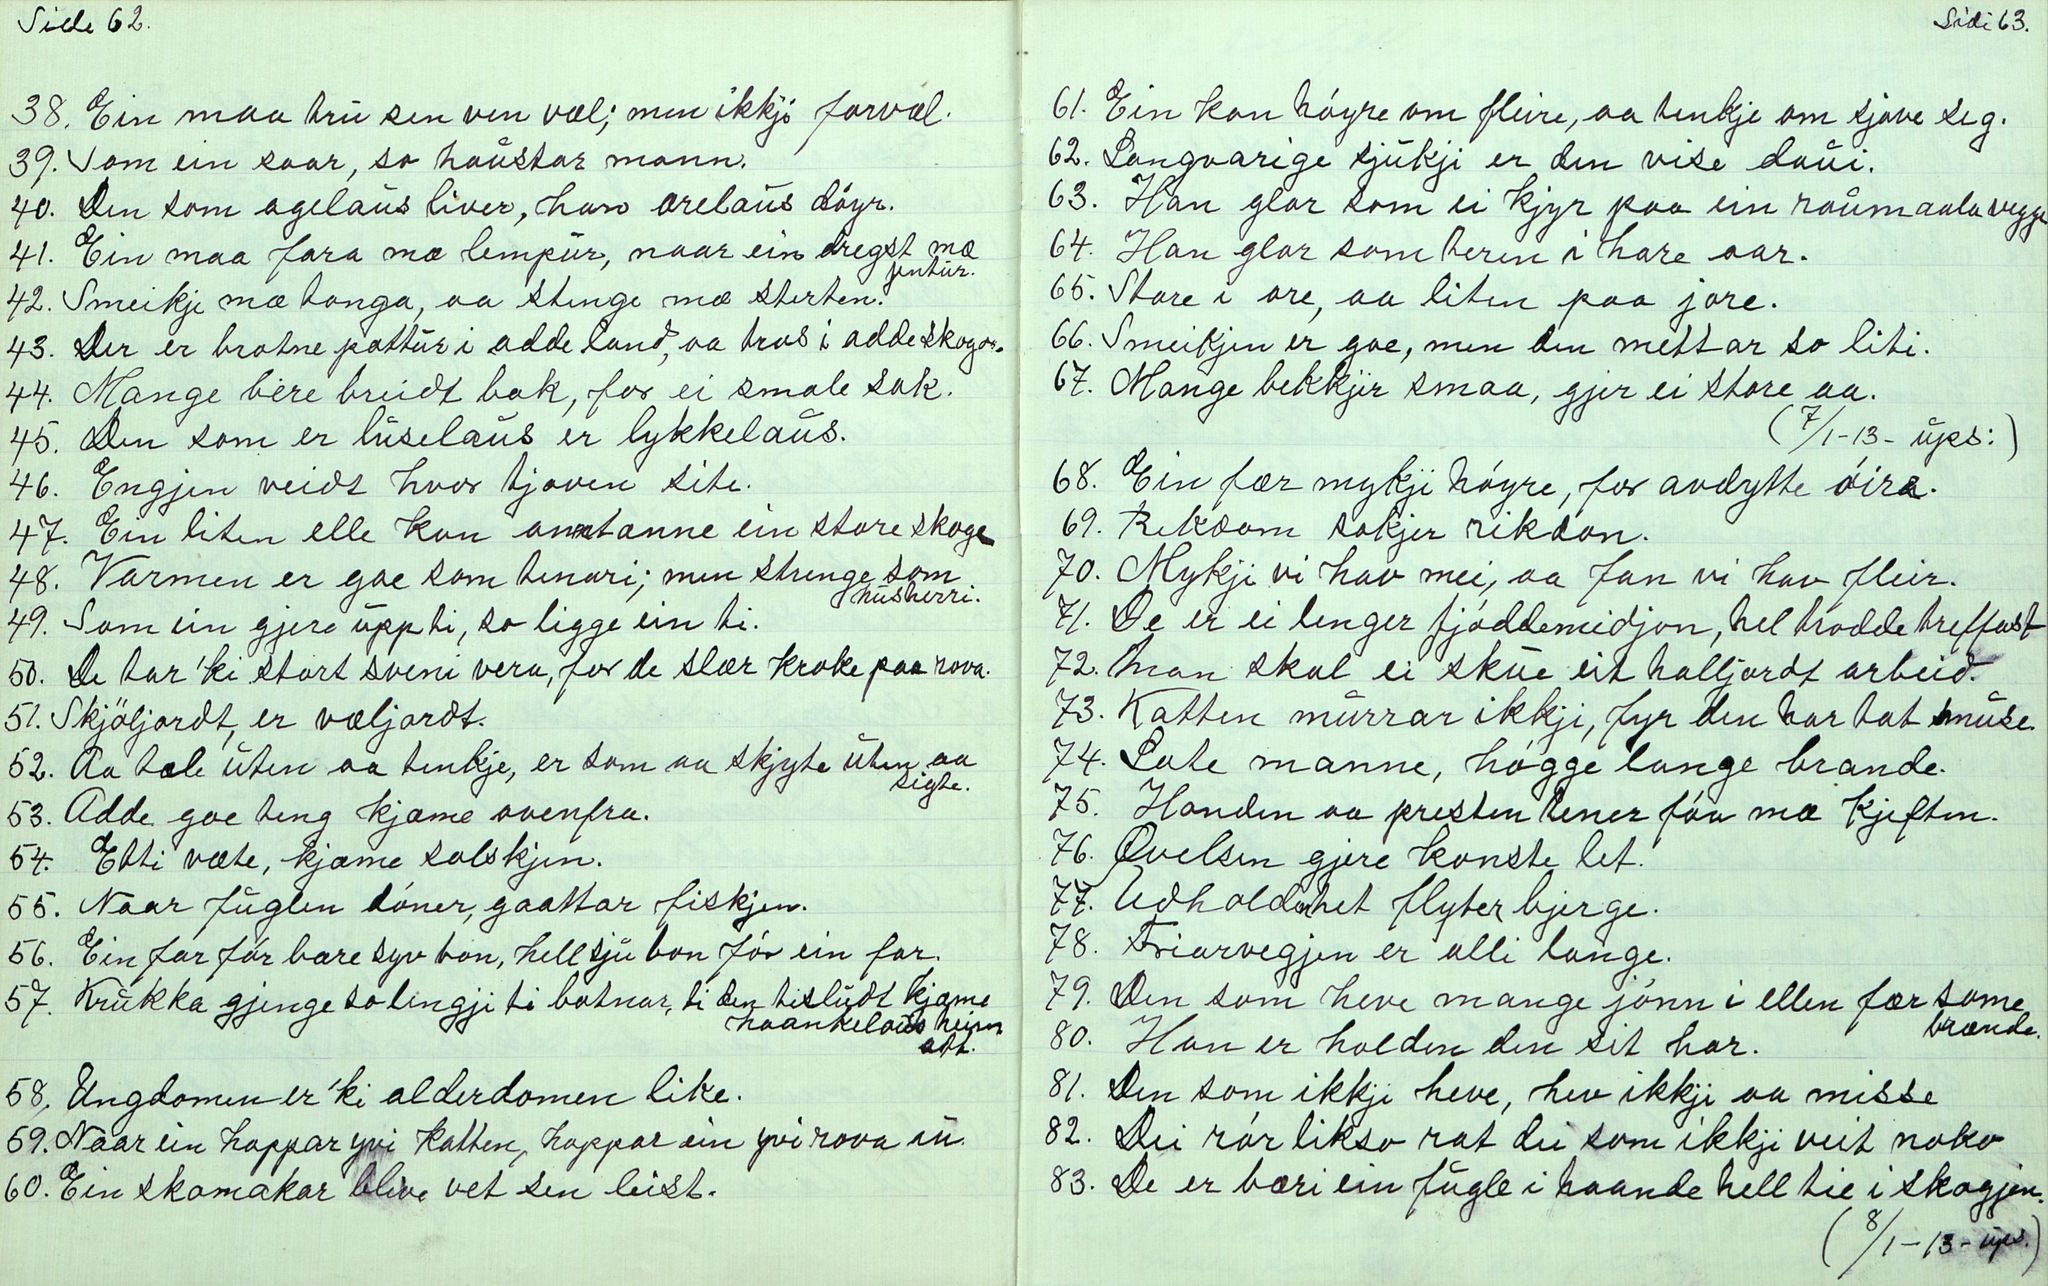 Side 62.
38. Ein maa trü sen ven væl; men ikkji forvæl.
39. Som ein saar, so haüstar mann.
40. Den som agelaüs liver, han ærelaüs döyr.
41. Ein maa fara mæ lempür, naar ein dregst mæ
jentür.
42. Smeikje mæ tonga, aa stinge mæ sterten.
43. Der er brotne pottür i adde land, aa tros i adde skogar.
44. Mange bere breidt bak, for ei smale sak.
45. Den som er lüselaüs er lykkelaüs.
46. Engjen veidt hvor tjoven site.
47. Ein liten elle kan antanne ein store skoge
48. Varmen er goe som tenari; men strenge som
hüsherri.
49. Som ein gjere üpp ti, so ligge ein ti.
50. De tar 'ki stort sveni vera, for de slær kroke paa rova.
51. Skjöljordt, er væljordt.
52. Aa tale üten aa tenkje, er som aa skjyte üten aa
sigte.
53. Adde goe teng kjæme ovenfra.
54. Etti væte, kjæme solskjin.
55. Naar füglen döner, gaattar fiskjen.
56. Ein farför bære syv bon, hell sjü bon för ein far.
57. Krükka gjenge so lengji ti botnar, ti den tislüdt kjæme
haankelaüs heim
att.
58. Ungdomen er 'ki alderdomen like.
59. Naar ein hoppar yvi katten, hoppar ein yvi rova aü
60. Ein skomakar blive vet sen leist.
Sidi 63.
61. Ein kan höyre om fleire, aa tenkje om sjøve seg.
62. Langvarige sjükji er den vise daüi.
63. Han glor som ei kjyr paa ein raümaala vegge
64. Han glor som teren i hare aar.
65. Store i ore, aa liten paa jore.
66. Smeikjen er goe, men den mettar so liti.
67. Mange bekkjir smaa, gjer ei store aa.
(7/1-13- üps:)
68. Ein fær mykji höyre, for avdytte öira.
69. Rikdom sökjer rikdon.
70. Mykji vi hav mei, aa fan vi hav fleir.
71. De er ei lenger tjöddemidjon, hel trodde treffast
72. Man skal ei sküe eit halljordt arbeid.
73. Katten mürrar ikkji, fyr den har tat müse.
74. Late manne, högge lange brande.
75. Honden aa presten tener föa mæ kjeften.
76. Øvelsen gjere konste let.
77. Udholdenhet flyter bjerge.
78. Friarvegjen er alli lange.
79. Den som heve mange jönn i ellen fær some
brænde.
80. Han er holden den sit har.
81. Den som ikkji heve, hev ikkji aa misse
82. Dei rör likso rat dei som ikkji veit noko
83. De er bæri ein fügle i haande hell tie i skogjen.
(8/1-13- üps.)